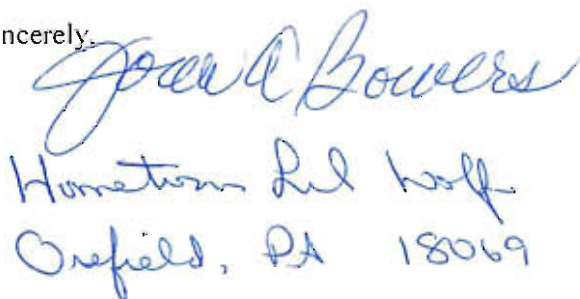 ncerely,
Joan A Bowers
Hometown Lil Wolf
Orefield, PA 18069